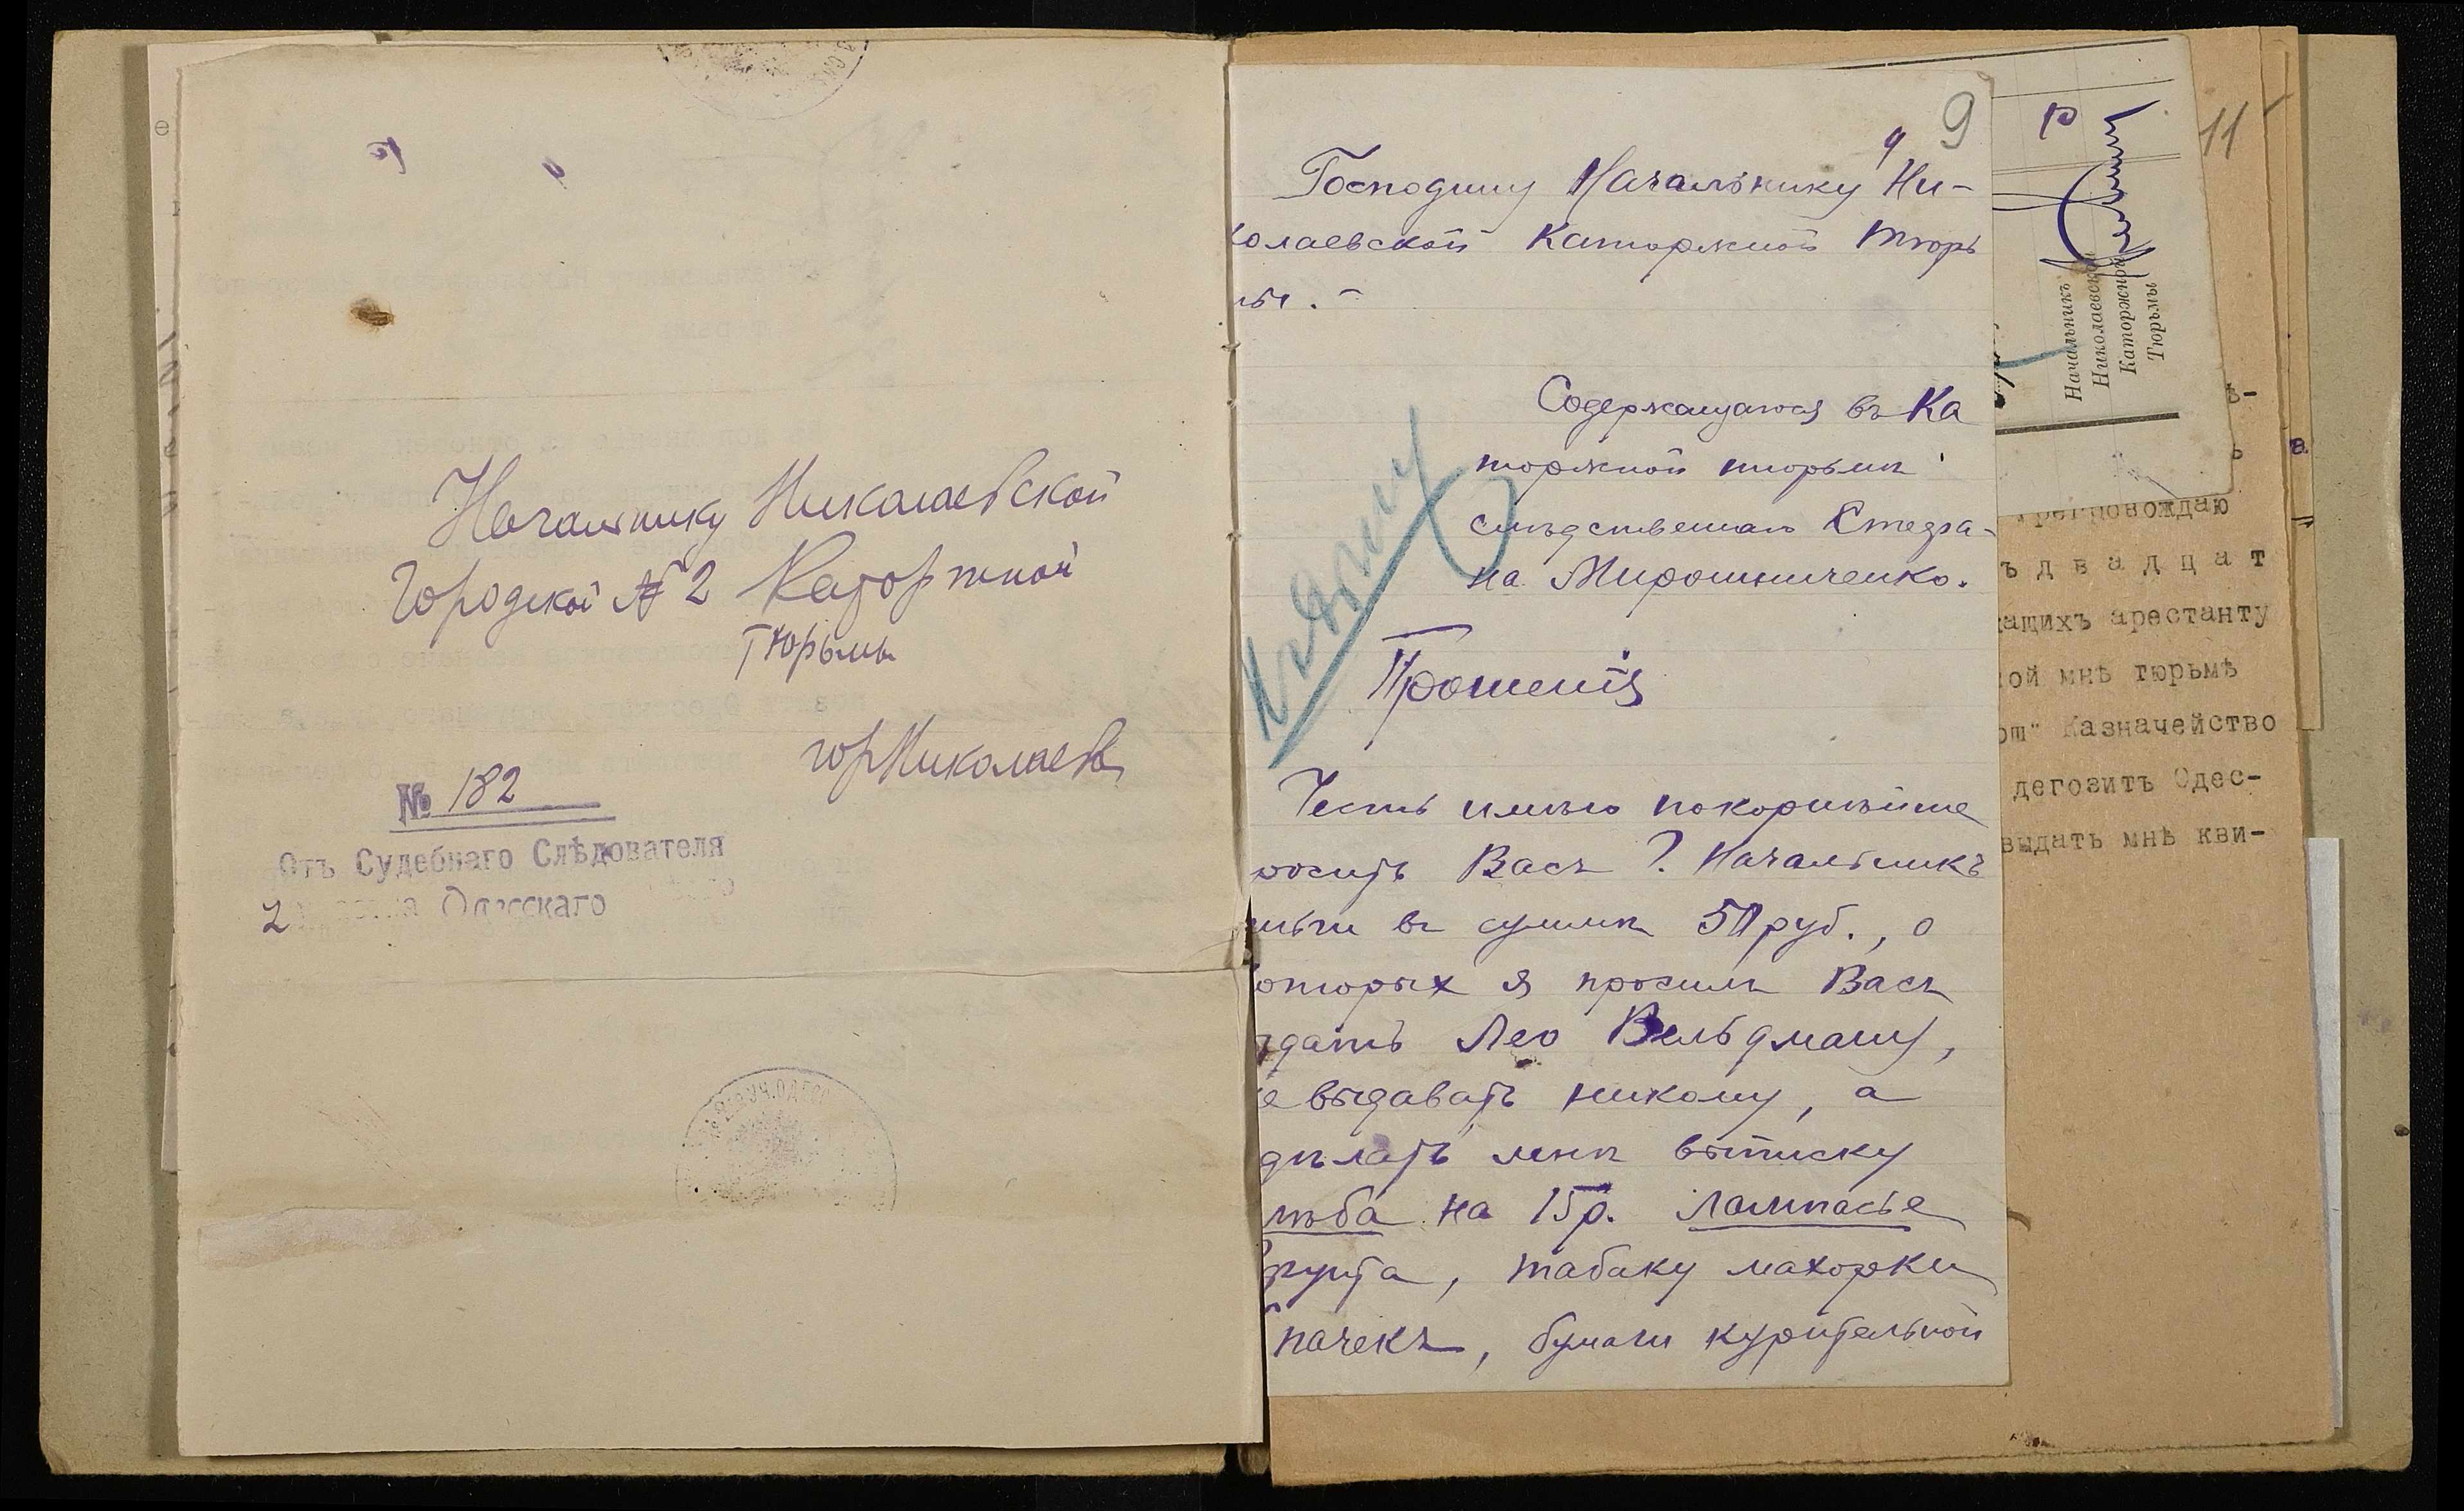 Начальнику Николаевской
Городской № 2 Каторжной
Тюрьмы
гор Николаевъ
№ 182
Отъ Судебнаго Слѣдователя
2 Одесскаго
9
Господину Начальнику Ни-
колаевской Каторжной тюрь
мы.-
Содержащагося въ Ка
торжной тюрьмѣ
слѣдственнаго Степа-
на Мирошниченко.
Прошенія
Честь имѣю покорнѣйше
росить Васъ Г. Начальникъ
ньги въ суммѣ 50 руб., о
оторых я просилъ Васъ
дать Лео Вельдману,
е выдавать никому, а
дѣлать мнѣ выписку
лѣба на 15 р. Лампасье
фунта, табаку махорки
пачекъ, бумаги курительной
11
Начальникъ
Николаевской
Каторжной
Тюрьмы
препровождаю
ъ д в а д ц а т
ащихъ арестанту
ой мнѣ тюрьмѣ
ош" Казначейство
депозитъ Одес-
выдать мнѣ кви-